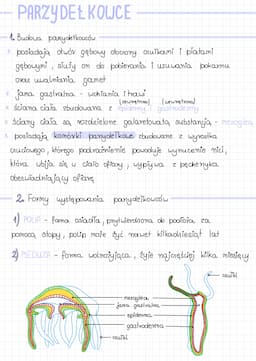 PARZYDEŁKOWCE
1. Budowa parzydełkowców
posiadają otwór gębowy otoczony czułkami i płatami
gębowymi, służy on do pobierania i usuwania pokarmu
oraz uwalniania gamet
jama gastralna - wchłania i trawi
(zewnętrzna) (wewnętrzna)
ściana ciała zbudowana z epidermy i gastrodermy
ściany ciała są rozdzielone galaretowatą substancją - mezoglea
posiadają komórki parzydełkowe zbudowane z wyrostka
czuciowego, którego podrażnienie powoduje wyrzucenie nici,
która wbija się w ciało ofiary, wypływa z pęcherzyka
obezwładniający ofiarę
2. Formy występowania parzydełkowców
1) POLIP - forma osiadła, przytwierdzona do podłoża za
pomocą stopy, polip może żyć nawet kilkadziesiąt lat
2) MEDUZA - forma wolnożyjąca, żyje najczęściej kilka miesięcy
czułki
mezoglea
jama gastralna
epiderma
gastroderma
czułki